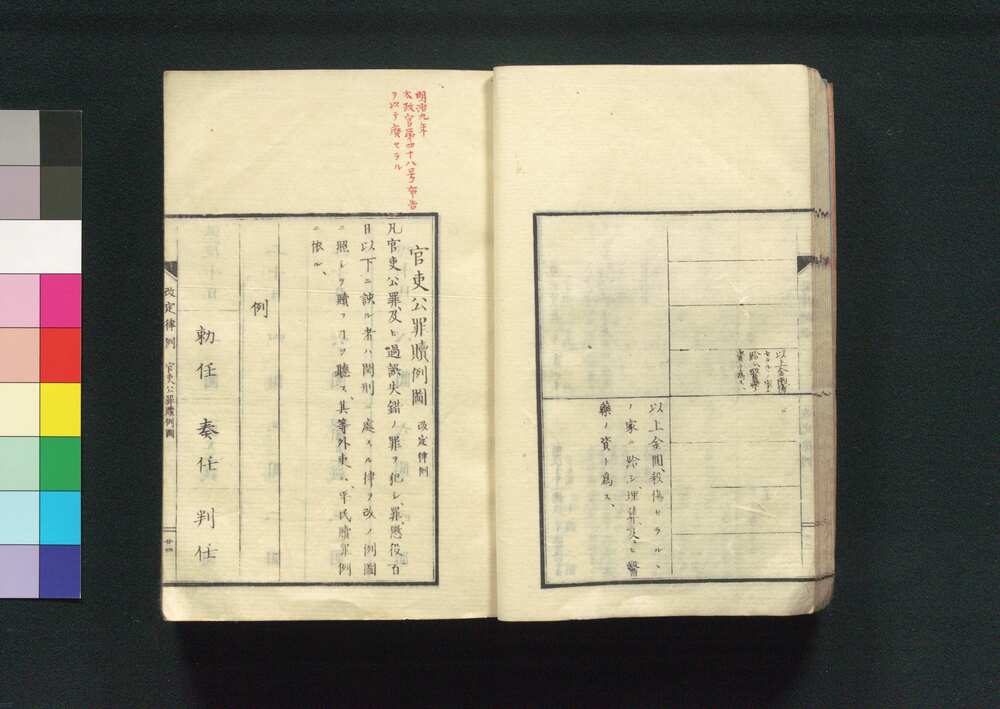 以上全圖
以上金圓、殺傷セラル、
ノ家ニ給シ、埋葬及ヒ醫
藥ノ資ト爲ス、
明治九年
太政官第四十八号布告
ヲ以テ廃セラル
官吏公罪贖例圖 改定律例
凡官吏公罪、及ヒ過誤失錯ノ罪ヲ犯シ、罪懲役百
日以下ニ該ル者ハ、閏刑ニ處スル律ヲ改メ、例圖
ニ照シテ贖フコヲ聽ス、其等外吏ハ、平民贖罪例
ニ依ル、
例
勅任 奏任 判任
改定律例 官吏公罪贖例圖